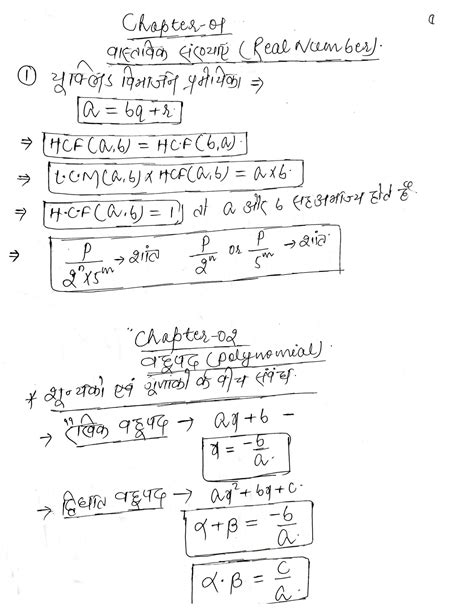 Chapter-01
वास्तविक संख्याएं (Real Number).
① यूक्लिड विभाजन प्रमेयिका ⇒
a = bq + r.
⇒ HCF(a,b) = HCF(b,a).
⇒ L.C.M(a,b) × HCF(a,b) = a×b.
⇒ H.C.F(a.b) = 1, तो a और b सहअभाज्य होते है.
⇒ P/2ⁿ×5ᵐ → शांत P/2ⁿ or P/5ᵐ → शांत.
Chapter-02
बहुपद (polynomial).
* शून्यको एवं गुणांको के बीच संबंध.
→ रैखिक बहुपद → ax+b -
x = -b/a.
→ द्विघात बहुपद → ax²+bx+c.
α+β = -b/a.
α.β = c/a.